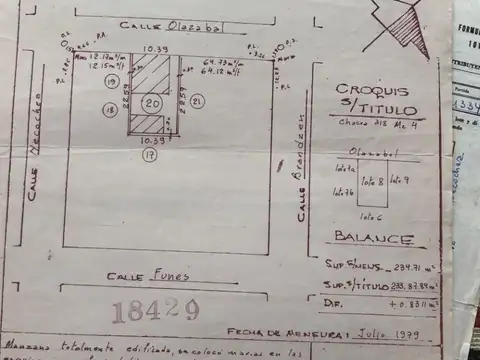 CALLE Olazabal
FORMU
P.A.
P.L.
10.39
Muro 12.17 m s/m
12.15 m s/t
64.73 m s/m
64.12 m s/t
Muro
P.L.
P.L.
19
18
22.59
20
22.59
21
10.39
17
CALLE Necochea
CALLE Brandzen
CALLE Funes
18429
CROQUIS
S/TITULO
Chacra 218 Mz 4
Olazabal
lote 7a
lote 7b
lote 8
lote 9
lote 6
BALANCE
SUP. S/MENS. _ 234.71 m²
SUP. S/TITULO 233,8789 m²
DIF. + 0.8311 m²
FECHA DE MENSURA: Julio 1979
Manzana totalmente edificada, se colocó marcas en las
1334